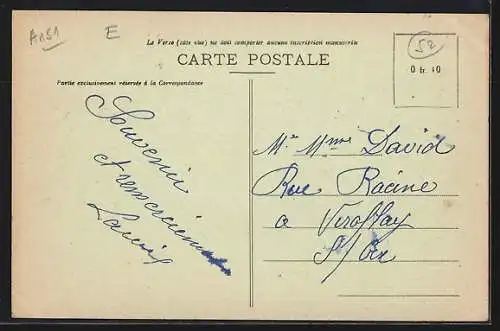 An51
E
52
Le Verso (côté vue) ne doit comporter aucune inscription manuscrite
CARTE POSTALE
0 fr. 10
Partie exclusivement réservée à la Correspondance
Souvenir
et remerciements
Mr Mme David
Rue Racine
a Viroflay
S/Oise